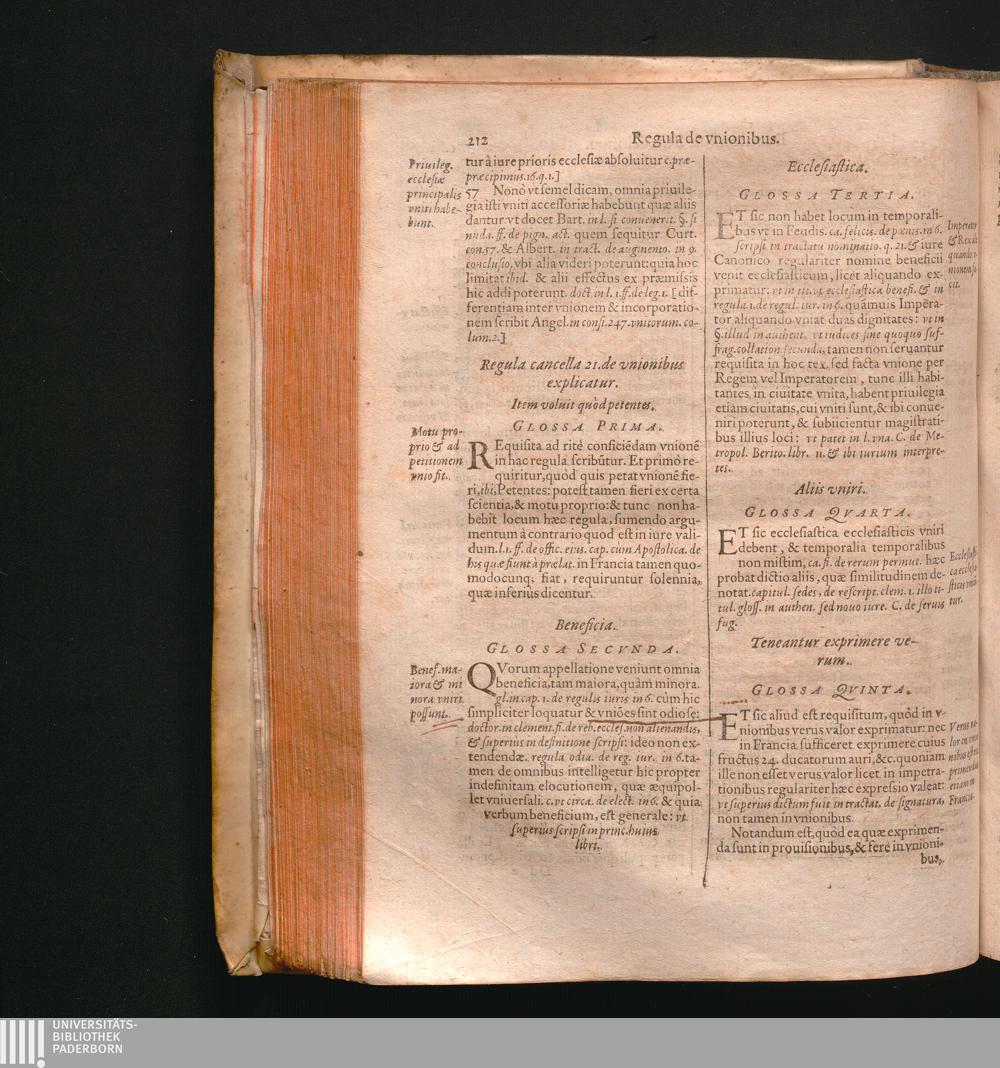 212
Regula de vnionibus.
Priuileg.
ecclesiæ
principalis
vniti habe-
bunt.
tur à iure prioris ecclesiæ absoluitur c.præ-
præcipimus.16.q.1.]
57 Nonò vt semel dicam, omnia priuile-
gia isti vniti accessoriæ habebunt quæ aliis
dantur.vt docet Bart. in l. si conuenerit. §. si
nuda. ff. de pign. act. quem sequitur Curt.
con.57. & Albert. in tract. de augmento. in 9.
conclusio, vbi alia videri poterunt: quia hoc
limitat ibid. & alii effectus ex præmissis
hic addi poterunt. doct. in l. 1. ff. de leg. 1. [ dif-
ferentiam inter vnionem & incorporatio-
nem scribit Angel. in consi. 247. vnitorum. co-
lum.2.]
Regula cancella 21. de vnionibus
explicatur.
Item voluit quòd petentes.
GLOSSA PRIMA.
Motu pro-
prio & ad
petitionem
vnio fit.
REquisita ad ritè conficiẽdam vnionẽ
in hac regula scribũtur. Et primò re-
quiritur, quòd quis petat vnionẽ fie-
ri, ibi, Petentes: potest tamen fieri ex certa
scientia, & motu proprio: & tunc non ha-
bebit locum hæc regula, sumendo argu-
mentum à contrario quod est in iure vali-
dum. l.1. ff. de offic. eius. cap. cùm Apostolica. de
his quæ fiunt à prælat. in Francia tamen quo-
modocunq; fiat, requiruntur solennia,
quæ inferius dicentur.
Beneficia.
GLOSSA SECVNDA.
Benef. ma-
iora & mi
nora vniri
possunt.
QVorum appellatione veniunt omnia
beneficia, tam maiora, quàm minora.
gl. in cap. 1. de regulis iuris in 6. cùm hic
simpliciter loquatur & vniões sint odiosę:
doctor. in clement. fi. de reb. eccles. non alienandis,
& superius in definitione scripsi: ideo non ex-
tendendæ. regula odia. de reg. iur. in 6. ta-
men de omnibus intelligetur hic propter
indefinitam elocutionem, quæ æquipol-
let vniuersali. c. vt circa. de elect. in 6. & quia
verbum beneficium, est generale: vt
superius scripsi in princ. huius
libri.
Ecclesiastica.
GLOSSA TERTIA.
ET sic non habet locum in temporali-
bus vt in Feudis. ca. felicis. de pœnis. in 6.
scripsi in tractatu nominatio. q. 21. & iure
Canonico regulariter nomine beneficii
venit ecclesiasticum, licet aliquando ex-
primatur: vt in tit. vt ecclesiastica benefi. & in
regula. 1. de regul. iur. in 6. quãmuis Impera-
tor aliquando vniat duas dignitates: vt in
§. illud in authent. vt iudices sine quoquo suf-
frag. collation secunda, tamen non seruantur
requisita in hoc tex. sed facta vnione per
Regem vel Imperatorem, tunc illi habi-
tantes in ciuitate vnita, habent priuilegia
etiam ciuitatis, cui vniti sunt, & ibi conue-
niri poterunt, & subiicientur magistrati-
bus illius loci: vt patet in l. vna. C. de Me-
tropol. Berito. libr. 11. & ibi iurium interpre-
tes.
Aliis vniri.
GLOSSA QVARTA.
ET sic ecclesiastica ecclesiasticis vniri
debent, & temporalia temporalibus
non mistim, ca. fi. de rerum permut. hæc
probat dictio aliis, quæ similitudinem de-
notat. capitul. sedes, de rescript. clem. 1. illo ti-
tul. gloss. in authen. sed nouo iure. C. de seruis
fug.
Teneantur exprimere ve-
rum.
GLOSSA QVINTA.
ET sic aliud est requisitum, quòd in v-
nionibus verus valor exprimatur: nec
in Francia sufficeret exprimere cuius
fructus 24. ducatorum auri, &c. quoniam
ille non esset verus valor licet in impetra-
tionibus regulariter hæc expressio valeat:
vt superius dictum fuit in tractat. de signatura,
non tamen in vnionibus.
Notandum est, quòd ea quæ exprimen-
da sunt in prouisionibus, & ferè in vnioni-
bus,
UNIVERSITÄTS-
BIBLIOTHEK
PADERBORN